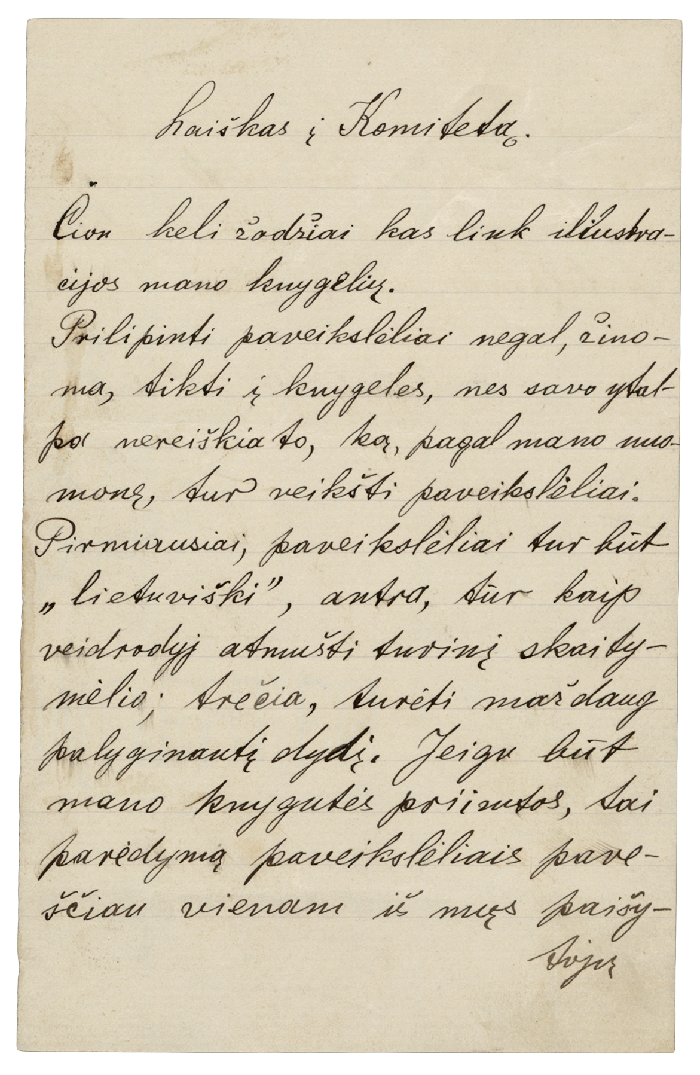 Laiškas į Komitetą.
Čion keli žodžiai kas link iliustra-
cijos mano knygelių.
Prilipinti paveikslėliai negal, žino-
ma, tikti į knygeles, nes savo ytal-
pa nereiškia to, ką, pagal mano nuo-
monę, tur veikšti paveikslėliai.
Pirmiausiai, paveikslėliai tur būt
„lietuviški", antra, tur kaip
veidrodyj atmušti turinį skaity-
mėlio; trečia, turėti maždaug
palyginantį dydį. Jeigu būt
mano knygutės priimtos, tai
parėdymą paveikslėliais pave-
ščiau vienam iš mųs paišy-
tojų